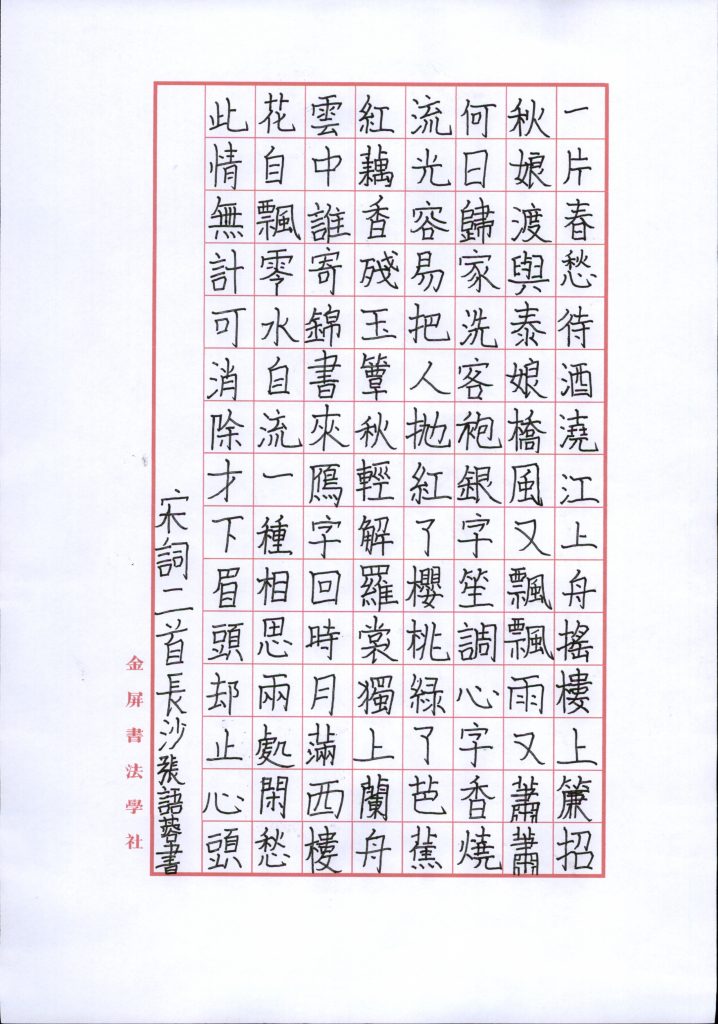 一片春愁待酒澆江上舟搖樓上簾招
秋娘渡與泰娘橋風又飄飄雨又蕭蕭
何日歸家洗客袍銀字笙調心字香燒
流光容易把人拋紅了櫻桃綠了芭蕉
紅藕香殘玉簟秋輕解羅裳獨上蘭舟
雲中誰寄錦書來鴈字回時月滿西樓
花自飄零水自流一種相思兩處閑愁
此情無計可消除才下眉頭却止心頭
宋詞二首長沙張語蓉書
金屏書法學社